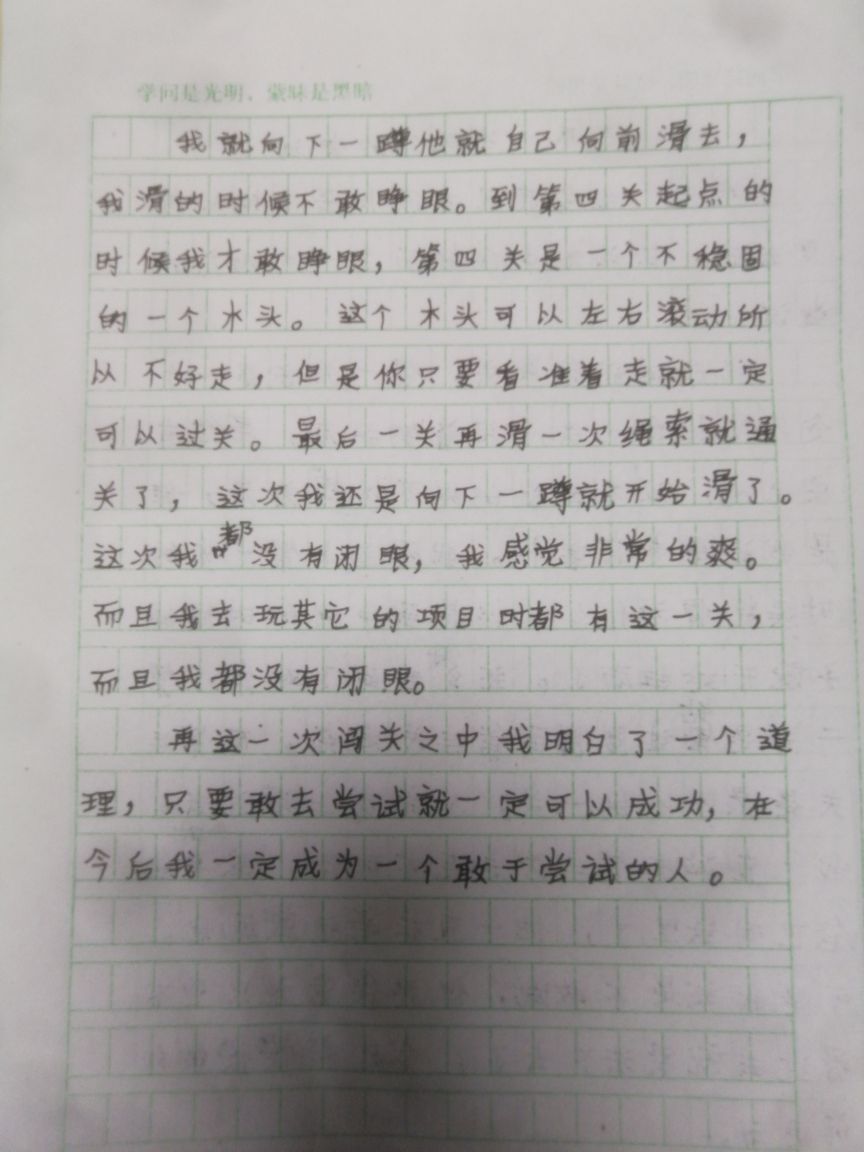 学问是光明、蒙昧是黑暗
我就向下一蹲他就自己向前滑去，
我滑的时候不敢睁眼。到第四关起点的
时候我才敢睁眼，第四关是一个不稳固
的一个木头。这个木头可以左右滚动所
以不好走，但是你只要看准着走就一定
可以过关。最后一关再滑一次绳索就通
关了，这次我还是向下一蹲就开始滑了。
这次我都没有闭眼，我感觉非常的爽。
而且我去玩其它的项目时都有这一关，
而且我都没有闭眼。
再这一次闯关之中我明白了一个道
理，只要敢去尝试就一定可以成功，在
今后我一定成为一个敢于尝试的人。